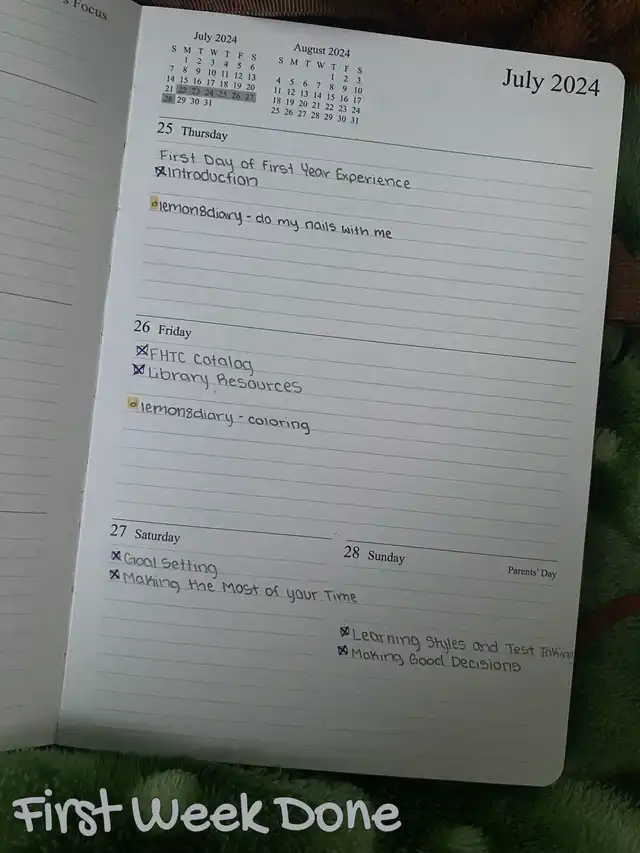 s Focus
July 2024
S M T W T F S
1 2 3 4 5 6
7 8 9 10 11 12 13
14 15 16 17 18 19 20
21 22 23 24 25 26 27
28 29 30 31
August 2024
S M T W T F S
1 2 3
4 5 6 7 8 9 10
11 12 13 14 15 16 17
18 19 20 21 22 23 24
25 26 27 28 29 30 31
July 2024
25 Thursday
First Day of First Year Experience
Introduction
lemon8diary - do my nails with me
26 Friday
FHTC Catalog
Library Resources
lemon8diary - coloring
27 Saturday
Goal Setting
Making the Most of your Time
28 Sunday
Parents' Day
Learning Styles and Test Taking
Making Good Decisions
First Week Done